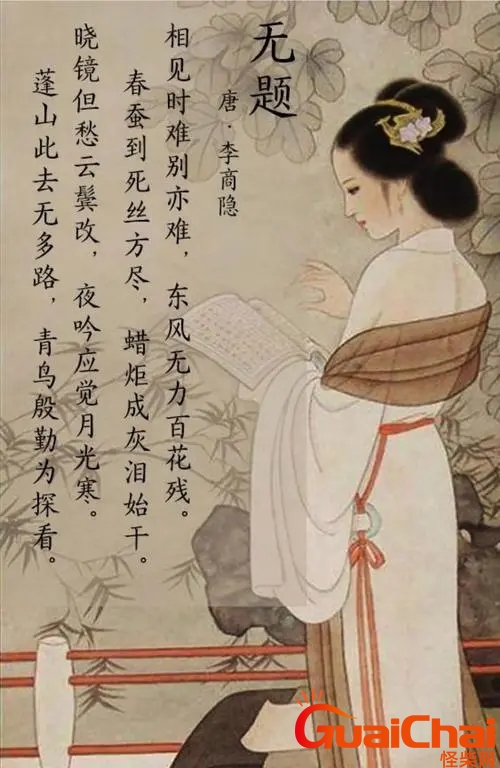 无题
唐·李商隐
相见时难别亦难，东风无力百花残。
春蚕到死丝方尽，蜡炬成灰泪始干。
晓镜但愁云鬓改，夜吟应觉月光寒。
蓬山此去无多路，青鸟殷勤为探看。
GuaiChai